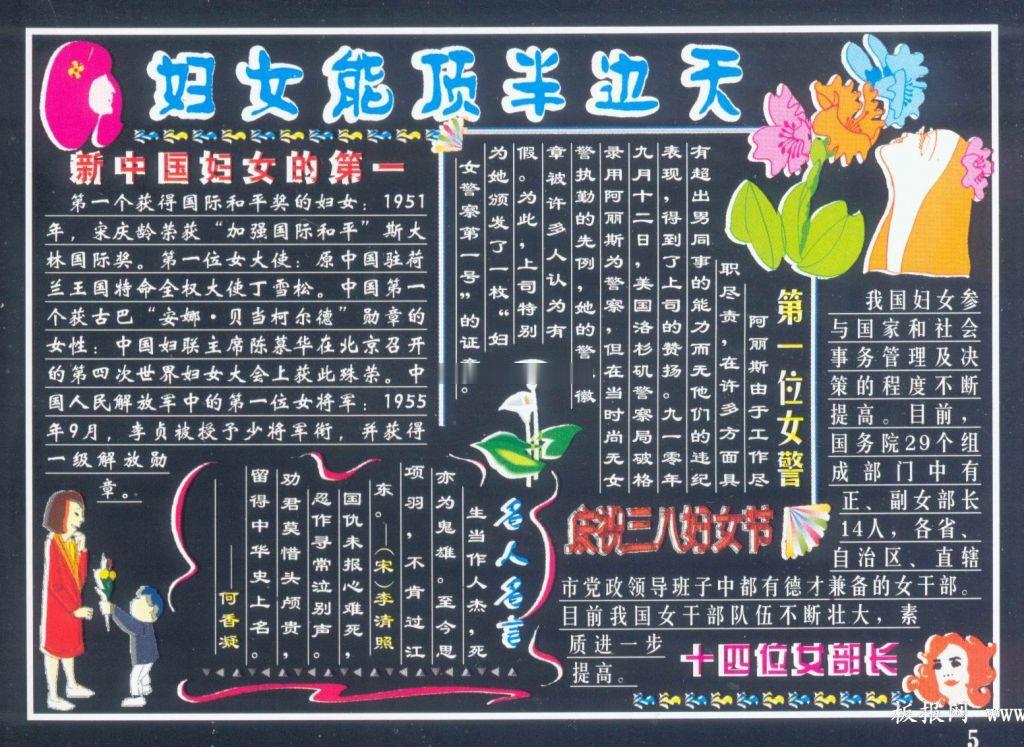 妇女能顶半边天
新中国妇女的第一
第一个获得国际和平奖的妇女：1951
年，宋庆龄荣获“加强国际和平”斯大
林国际奖。第一位女大使：原中国驻荷
兰王国特命全权大使丁雪松。中国第一
个获古巴“安娜·贝当柯尔德”勋章的
女性：中国妇联主席陈慕华在北京召开
的第四次世界妇女大会上获此殊荣。中
国人民解放军中的第一位女将军：1955
年9月，李贞被授予少将军衔，并获得
一级解放勋
章。
第一位女警
阿丽斯由于工作尽
职尽责，在许多方面具
有超出男同事的能力而无他们的违纪
表现，得到了上司的赞扬。九一零年
九月十二日，美国洛杉矶警察局破格
录用阿丽斯为警察，但在当时尚无女
警执勤的先例，她的警徽
章被许多人认为有
假。为此，上司特别
为她颁发了一枚“妇
女警察第一号”的证章。
名人名言
生当作人杰，死
亦为鬼雄。至今思
项羽，不肯过江
东。——（宋）李清照
国仇未报心难死，
忍作寻常泣别声。
劝君莫惜头颅贵，
留得中华史上名。
——何香凝
庆祝三八妇女节
我国妇女参
与国家和社会
事务管理及决
策的程度不断
提高。目前，
国务院29个组
成部门中有
正、副女部长
14人，各省、
自治区、直辖
市党政领导班子中都有德才兼备的女干部。
目前我国女干部队伍不断壮大，素
质进一步
提高。
十四位女部长
板报网 www
5